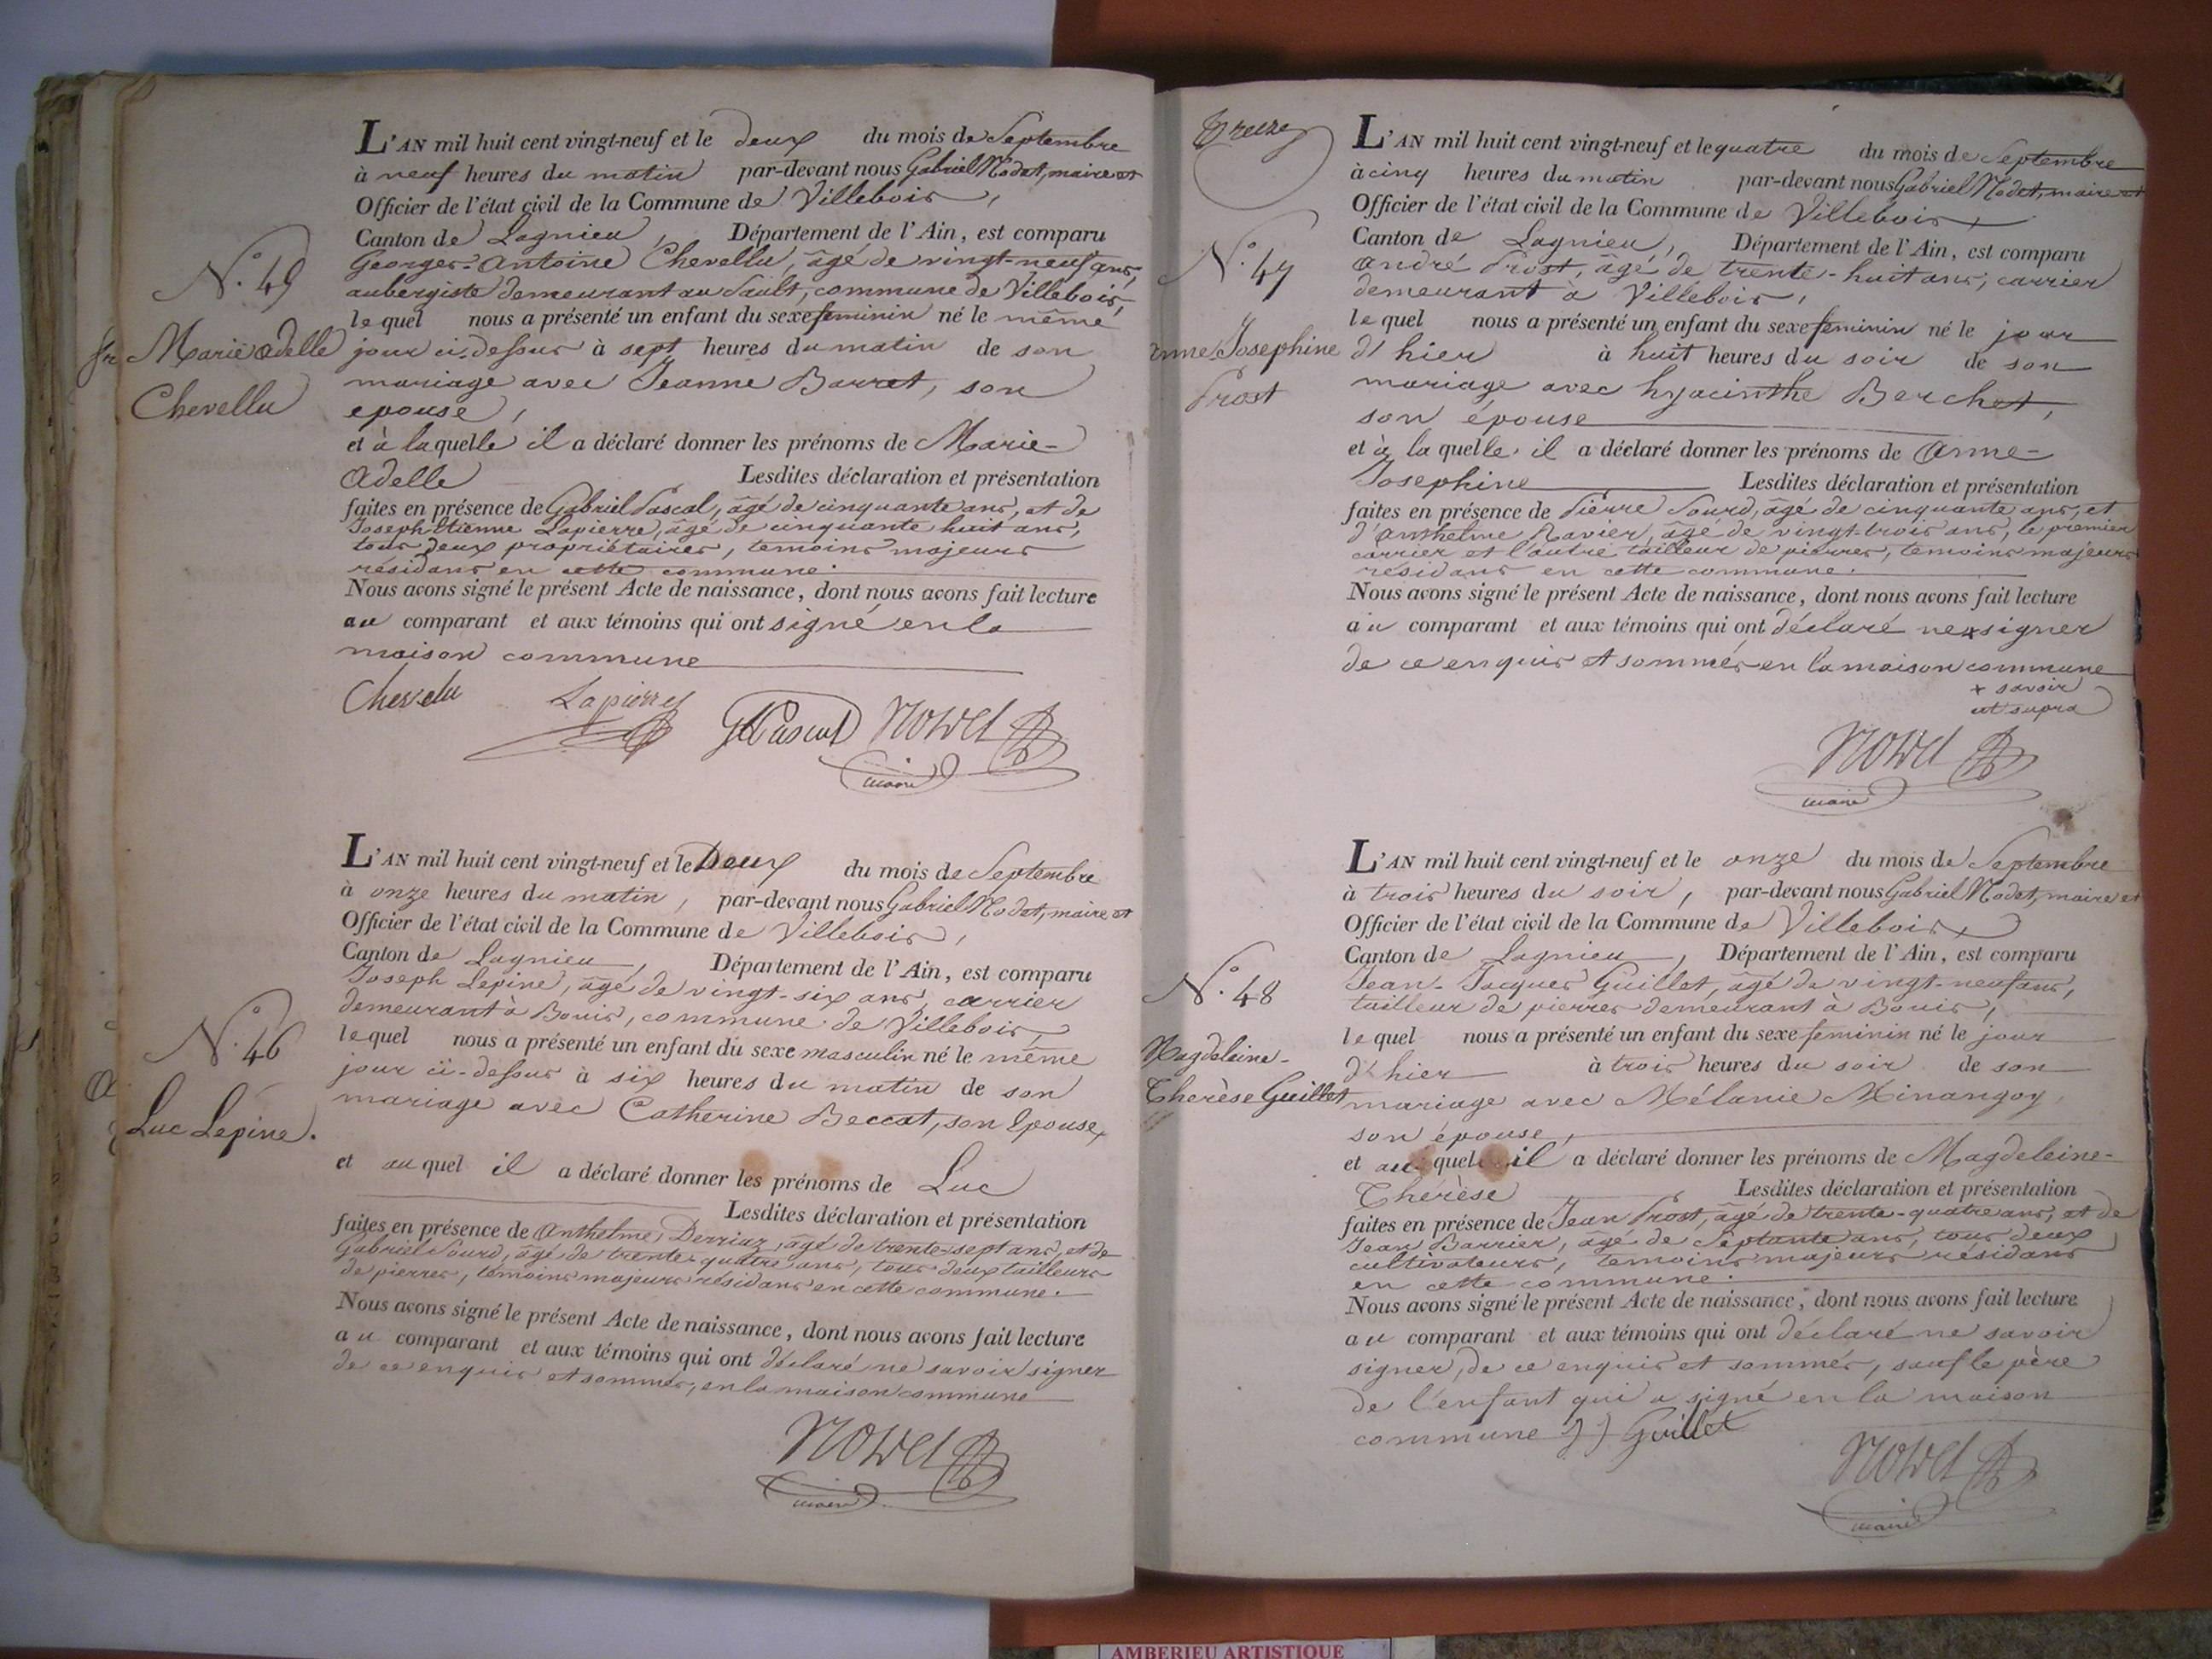 L'AN mil huit cent vingt-neuf et le deux du mois de Septembre
à neuf heures du matin par-devant nous Gabriel Nodet, maire et
Officier de l'état civil de la Commune de Villebois,
Canton de Lagnieu, Département de l'Ain, est comparu
Georges-Antoine Chevellu, âgé de vingt-neuf ans,
aubergiste demeurant au Sault, commune de Villebois,
N.° 45
Marie Adelle
Chevellu
le quel nous a présenté un enfant du sexe feminin né le même
jour ci-dessus à sept heures du matin de son
mariage avec Jeanne Barret, son
epouse,
et à laquelle il a déclaré donner les prénoms de Marie-
Adelle Lesdites déclaration et présentation
faites en présence de Gabriel Pascal, âgé de cinquante ans, et de
Joseph Etienne Lapierre, âgé de cinquante huit ans,
tous deux propriétaires, temoins majeurs
résidans en cette commune.
Nous avons signé le présent Acte de naissance, dont nous avons fait lecture
au comparant et aux témoins qui ont signé en la
maison commune
Chevelu Lapierre G Pascal Nodet
maire
L'AN mil huit cent vingt-neuf et le Deux du mois de Septembre
à onze heures du matin, par-devant nous Gabriel Nodet, maire et
Officier de l'état civil de la Commune de Villebois,
Canton de Lagnieu, Département de l'Ain, est comparu
Joseph Lepine, âgé de vingt-six ans, carrier
demeurant à Bouis, commune de Villebois,
N.° 46
Luc Lepine.
le quel nous a présenté un enfant du sexe masculin né le même
jour ci-dessus à six heures du matin de son
mariage avec Catherine Beccat, son Epouse,
et au quel il a déclaré donner les prénoms de Luc
Lesdites déclaration et présentation
faites en présence de Anthelme Derriaz, âgé de trente-sept ans, et de
Gabriel Sourd, âgé de trente-quatre ans, tous deux tailleurs
de pierres, témoins majeurs résidans en cette commune.
Nous avons signé le présent Acte de naissance, dont nous avons fait lecture
au comparant et aux témoins qui ont déclaré ne savoir signer
de ce enquis et sommés, en la maison commune
Nodet
maire
Treize
L'AN mil huit cent vingt-neuf et le quatre du mois de Septembre
à cinq heures du matin par-devant nous Gabriel Nodet, maire et
Officier de l'état civil de la Commune de Villebois,
Canton de Lagnieu, Département de l'Ain, est comparu
André Prost, âgé de trente-huit ans, carrier
demeurant à Villebois,
N.° 47
Anne Josephine
Prost
le quel nous a présenté un enfant du sexe feminin né le jour
d'hier à huit heures du soir de son
mariage avec hyacinthe Berchet,
son épouse
et à la quelle il a déclaré donner les prénoms de Anne-
Josephine Lesdites déclaration et présentation
faites en présence de Pierre Sourd, âgé de cinquante ans, et
d'Anthelme Ravier, âgé de vingt-trois ans, le premier
carrier et l'autre tailleur de pierres, temoins majeurs
résidans en cette commune.
Nous avons signé le présent Acte de naissance, dont nous avons fait lecture
au comparant et aux témoins qui ont déclaré ne + signer
de ce enquis et sommés en la maison commune
+ savoir
ut supra
Nodet
maire
L'AN mil huit cent vingt-neuf et le onze du mois de Septembre
à trois heures du soir, par-devant nous Gabriel Nodet, maire et
Officier de l'état civil de la Commune de Villebois,
Canton de Lagnieu, Département de l'Ain, est comparu
Jean-Jacques Guillet, âgé de vingt-neuf ans,
tailleur de pierres demeurant à Bouis,
N.° 48
Magdeleine-
Therèse Guillet
le quel nous a présenté un enfant du sexe feminin né le jour
d'hier à trois heures du soir de son
mariage avec Mélanie Minangoy,
son épouse,
et au quel il a déclaré donner les prénoms de Magdeleine-
Thérèse Lesdites déclaration et présentation
faites en présence de Jean Prost, âgé de trente-quatre ans, et de
Jean Barrier, âgé de Septante ans, tous deux
cultivateurs, temoins majeurs résidans
en cette commune.
Nous avons signé le présent Acte de naissance, dont nous avons fait lecture
au comparant et aux témoins qui ont déclaré ne savoir
signer, de ce enquis et sommés, sauf le père
de l'enfant qui a signé en la maison
commune JJ Guillet
Nodet
maire
AMBERIEU ARTISTIQUE